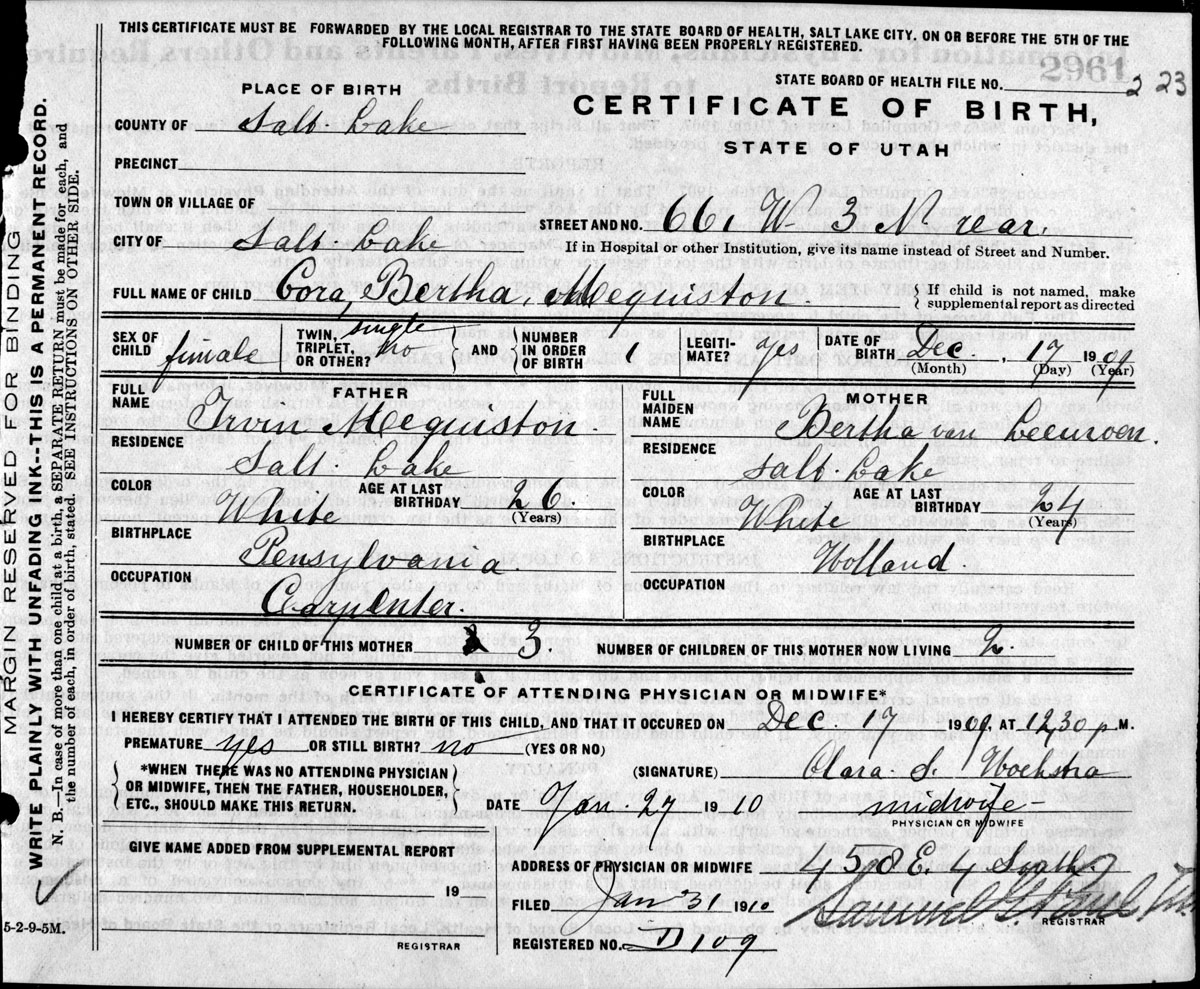 THIS CERTIFICATE MUST BE FORWARDED BY THE LOCAL REGISTRAR TO THE STATE BOARD OF HEALTH, SALT LAKE CITY, ON OR BEFORE THE 5TH OF THE
FOLLOWING MONTH, AFTER FIRST HAVING BEEN PROPERLY REGISTERED.
2961
STATE BOARD OF HEALTH FILE NO. 2 23
PLACE OF BIRTH
CERTIFICATE OF BIRTH,
STATE OF UTAH
COUNTY OF Salt Lake
PRECINCT
TOWN OR VILLAGE OF
STREET AND NO. 661 W 3 N rear.
CITY OF Salt Lake
If in Hospital or other Institution, give its name instead of Street and Number.
FULL NAME OF CHILD Cora, Bertha, Mequiston
{If child is not named, make supplemental report as directed
SEX OF CHILD female
TWIN, TRIPLET, OR OTHER? single no
AND NUMBER IN ORDER OF BIRTH 1
LEGITIMATE? yes
DATE OF BIRTH Dec. , 17 1909
(Month) (Day) (Year)
FATHER
FULL NAME Irvin Mequiston
RESIDENCE Salt. Lake
COLOR White
AGE AT LAST BIRTHDAY 26
(Years)
BIRTHPLACE Pensylvania
OCCUPATION Carpenter.
MOTHER
FULL MAIDEN NAME Bertha van Leeuwen.
RESIDENCE Salt. Lake
COLOR White
AGE AT LAST BIRTHDAY 24
(Years)
BIRTHPLACE Holland.
OCCUPATION
NUMBER OF CHILD OF THIS MOTHER 3.
NUMBER OF CHILDREN OF THIS MOTHER NOW LIVING 2.
CERTIFICATE OF ATTENDING PHYSICIAN OR MIDWIFE*
I HEREBY CERTIFY THAT I ATTENDED THE BIRTH OF THIS CHILD, AND THAT IT OCCURED ON Dec. 17 1909. AT 12,30 p M.
PREMATURE yes OR STILL BIRTH? no (YES OR NO)
*WHEN THERE WAS NO ATTENDING PHYSICIAN
OR MIDWIFE, THEN THE FATHER, HOUSEHOLDER,
ETC., SHOULD MAKE THIS RETURN.
(SIGNATURE) Clara. S. Hoekstra
DATE Jan. 27 1910 midwife
PHYSICIAN OR MIDWIFE
GIVE NAME ADDED FROM SUPPLEMENTAL REPORT
19
REGISTRAR
ADDRESS OF PHYSICIAN OR MIDWIFE 4 South
FILED Jan 31 1910
REGISTRAR
REGISTERED NO. D109
MARGIN RESERVED FOR BINDING
WRITE PLAINLY WITH UNFADING INK--THIS IS A PERMANENT RECORD.
N. B.—In case of more than one child at a birth, SEPARATE RETURN must be made for each, and
the number of each, in order of birth, stated. SEE INSTRUCTIONS ON OTHER SIDE.
5-2-9-5M.